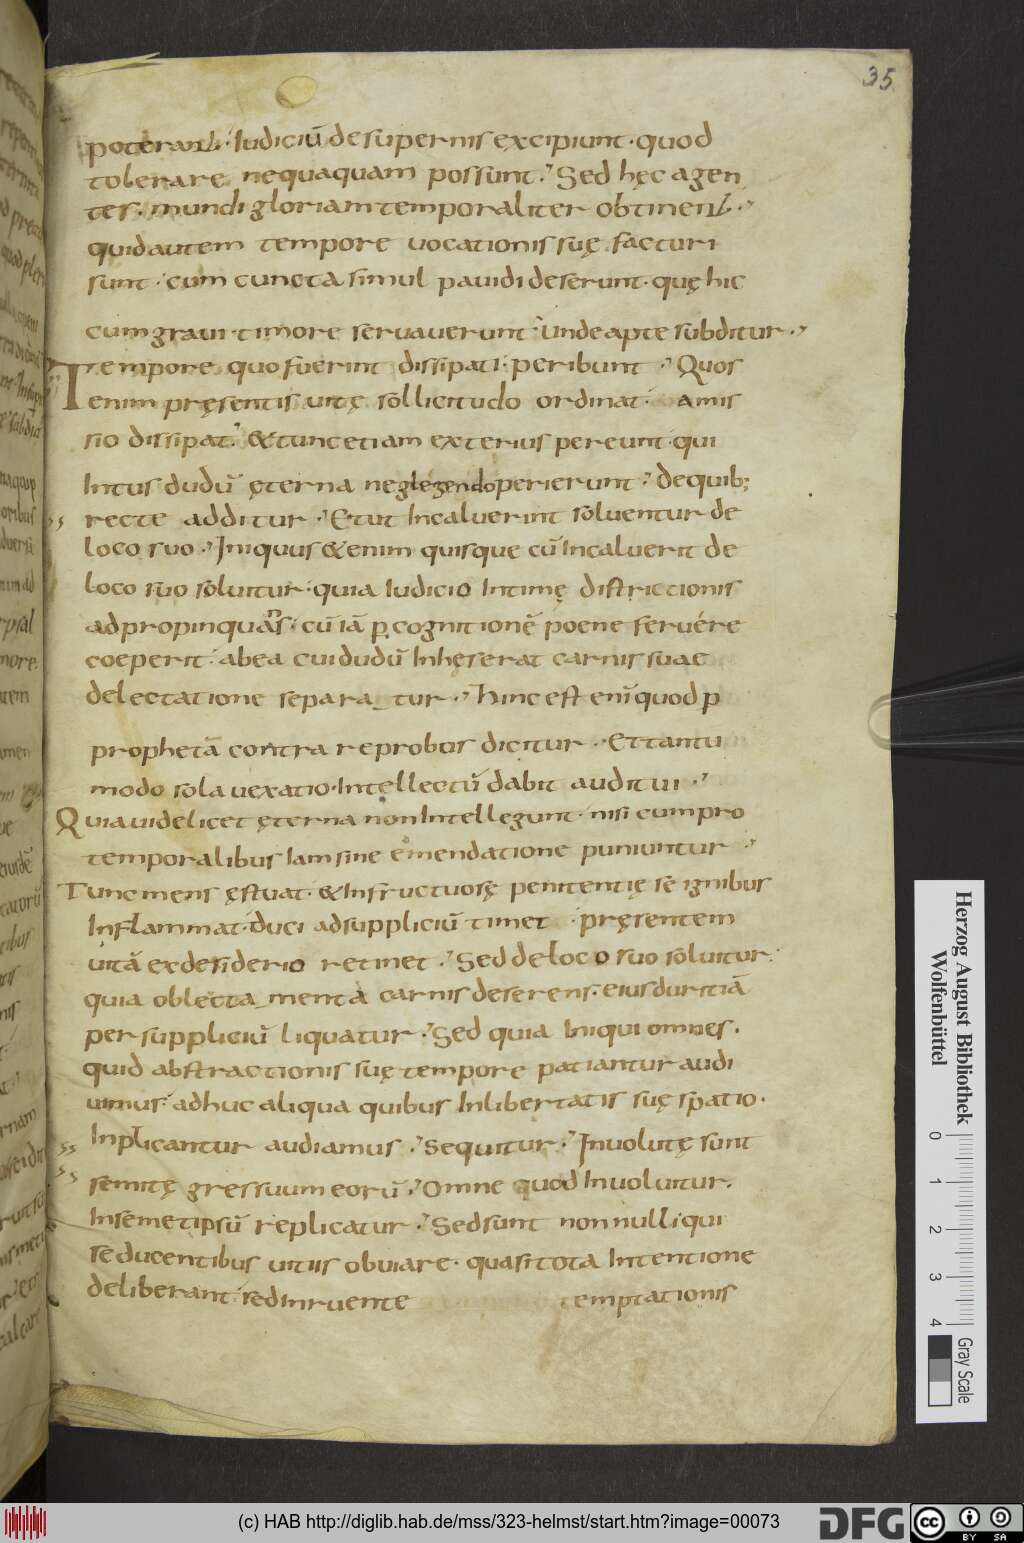 35
poterant· Iudiciū desupernis excipiunt· quod
tolerare nequaquam possunt· Sed hęc agen
tes· mundi gloriam temporaliter obtinent·
quid autem tempore uocationis suę facturi
sunt· cum cuncta simul pauidi deserunt· quę hic
cum graui timore servaverunt· Unde apte subditur·
Tempore quo fuerint dissipati· peribunt· Quos
enim pręsentis uitę sollicitudo ordinat· amis
sio dissipat· & tunc etiam exterius pereunt· qui
Intus dudū ęterna neglegendo perierunt· De quib;
recte additur· Et ut Incaluerint soluentur de
loco suo· Iniquus & enim quisque cū Incaluerit de
loco suo soluitur· quia Iudicio Intimę districtionis
adpropinquans· cū iā p cognitionē poene feruére
coeperit· ab ea cui dudū Inhęserat carnis suae
delectatione separa_tur· Hinc est enī quod p
prophetā contra reprobos dicitur· Et tantu
modo sola uexatio· Intellectū dabit auditui·
Quia uidelicet ęterna non Intellegunt· nisi cum pro
temporalibus Iam sine emendatione puniuntur·
Tunc mens ęstuat· & Infructuosę penitentię se ignibus
Inflammat· duci ad suppliciū timet· pręsentem
uitā ex desiderio retinet· Sed de loco suo soluitur·
quia oblecta_menta carnis deserens· eius duritiā
per suppliciū liquatur· Sed quia Iniqui omnes·
quid abstractionis suę tempore patiantur audi
uimus· adhuc aliqua quibus In libertatis suę spatio·
Inplicantur audiamus· Sequitur· Inuolutę sunt
semitę gressuum eorū· Omne quod Inuoluitur·
In semetipsū replicatur· Sed sunt non nulli qui
seducentibus uitiis obuiare· quasi tota Intentione
deliberant· sed inruente temptationis
Herzog August Bibliothek
Wolfenbüttel
0 1 2 3 4
Gray Scale
(c) HAB http://diglib.hab.de/mss/323-helmst/start.htm?image=00073
DFG
cc BY SA